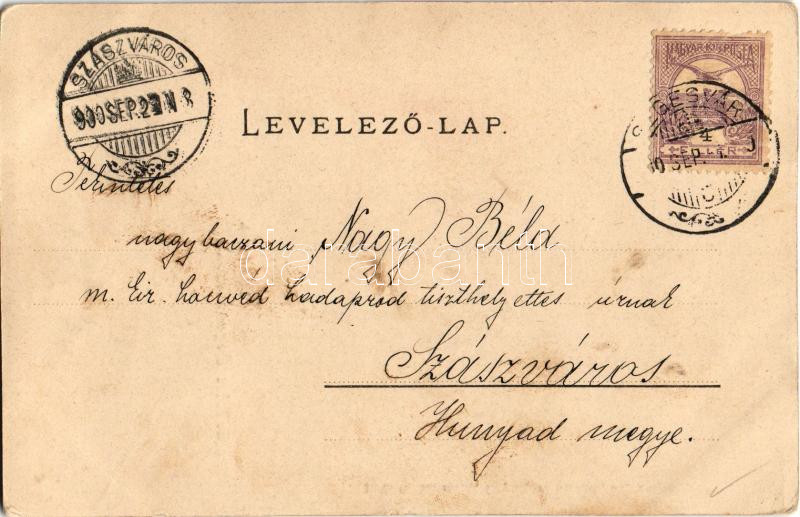 SZÁSZVÁROS
900 SEP. 2
LEVELEZŐ-LAP.
MAGYAR KIR. POSTA
SEGESVÁR
SEP.
Tekintetes
nagybaczani Nagy Béla
m. kir. honvéd hadapród tiszthelyettes úrnak
Szászváros
Hunyad megye.
darabanth